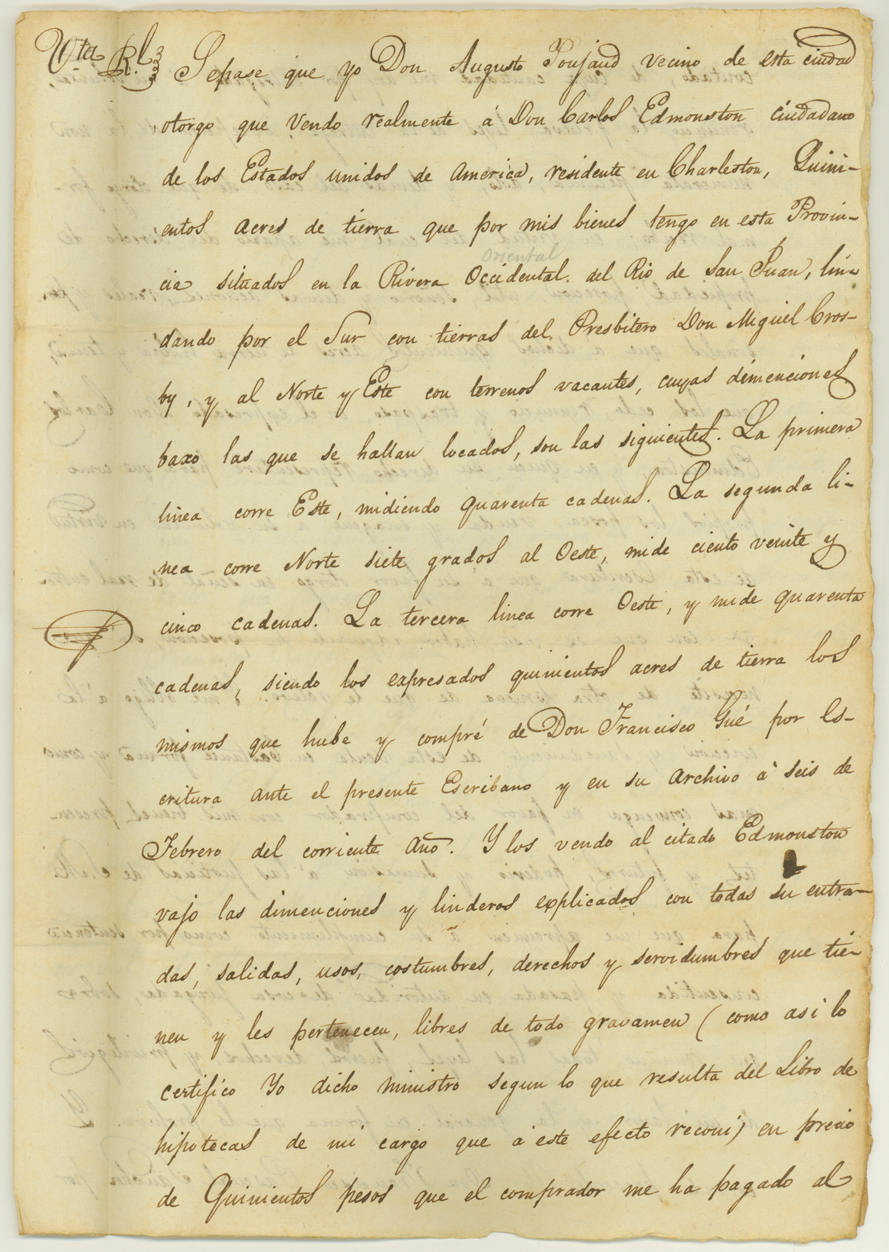 Vta Rl
Sepase que yo Don Augusto Poujaud vecino de esta ciudad
otorgo que vendo realmente á Don Carlos Edmonston ciudadano
de los Estados unidos de America, residente en Charleston, Quini-
entos acres de tierra que por mis bienes tengo en esta Provin-
oriental
cia situados en la Rivera Occidental. del Rio de San Juan, lin-
dando por el Sur con tierras del Presbitero Don Miguel Cros-
by, y al Norte y Este con terrenos vacantes, cuyas dimenciones
baxo las que se hallan locados, son las siguientes. La primera
linea corre Este, midiendo quarenta cadenas. La segunda li-
nea corre Norte siete grados al Oeste, mide ciento veinte y
cinco cadenas. La tercera linea corre Oeste, y mide quarenta
cadenas, siendo los expresados quinientos acres de tierra los
mismos que hube y compré de Don Francisco Gué por Es-
critura ante el presente Escribano y en su Archivo á seis de
Febrero del corriente Año. Y los vendo al citado Edmonston
vajo las dimenciones y linderos explicados con todas su entra-
das, salidas, usos, costumbres, derechos y servidumbres que tie-
nen y les pertenecen, libres de todo gravamen (como asi lo
certifico Yo dicho ministro segun lo que resulta del Libro de
hipotecas de mi cargo que á este efecto reconi) en precio
de Quinientos pesos que el comprador me ha pagado al